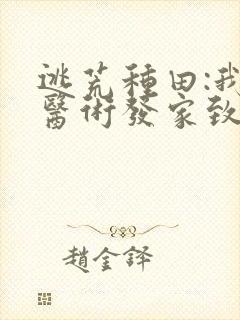 逃荒種田:我
醫術發家致
趙金鐸